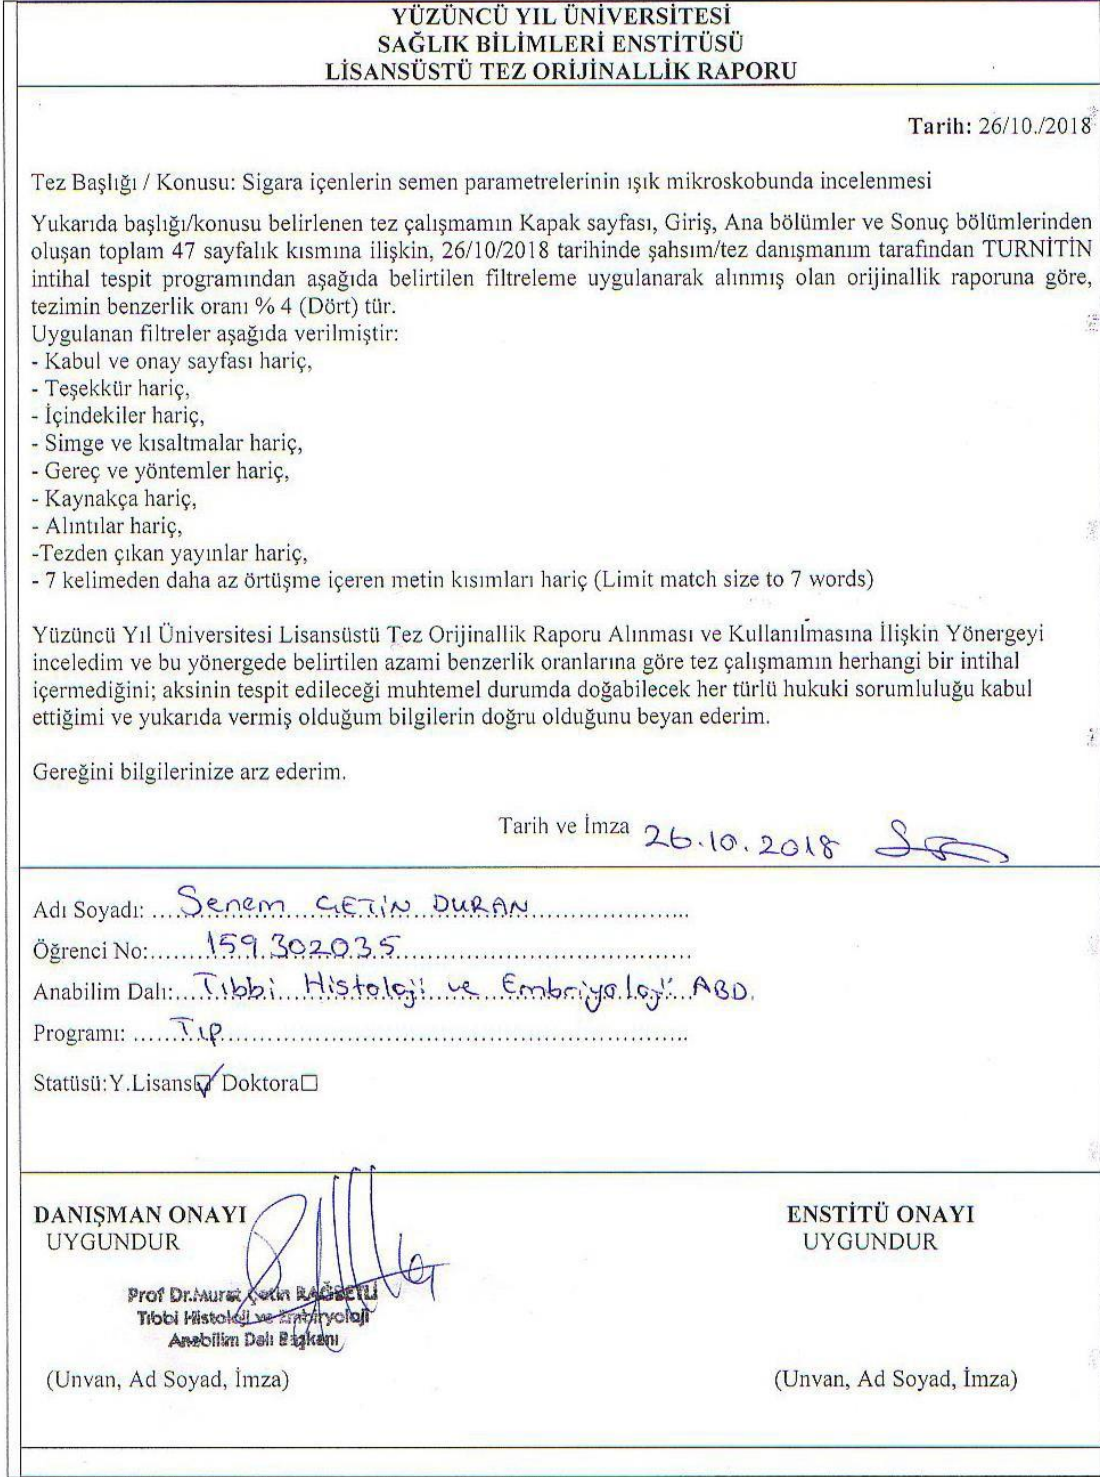 YÜZÜNCÜ YIL ÜNİVERSİTESİ
SAĞLIK BİLİMLERİ ENSTİTÜSÜ
LİSANSÜSTÜ TEZ ORİJİNALLİK RAPORU
Tarih: 26/10./2018
Tez Başlığı / Konusu: Sigara içenlerin semen parametrelerinin ışık mikroskobunda incelenmesi
Yukarıda başlığı/konusu belirlenen tez çalışmamın Kapak sayfası, Giriş, Ana bölümler ve Sonuç bölümlerinden
oluşan toplam 47 sayfalık kısmına ilişkin, 26/10/2018 tarihinde şahsım/tez danışmanım tarafından TURNİTİN
intihal tespit programından aşağıda belirtilen filtreleme uygulanarak alınmış olan orijinallik raporuna göre,
tezimin benzerlik oranı % 4 (Dört) tür.
Uygulanan filtreler aşağıda verilmiştir:
- Kabul ve onay sayfası hariç,
- Teşekkür hariç,
- İçindekiler hariç,
- Simge ve kısaltmalar hariç,
- Gereç ve yöntemler hariç,
- Kaynakça hariç,
- Alıntılar hariç,
-Tezden çıkan yayınlar hariç,
- 7 kelimeden daha az örtüşme içeren metin kısımları hariç (Limit match size to 7 words)
Yüzüncü Yıl Üniversitesi Lisansüstü Tez Orijinallik Raporu Alınması ve Kullanılmasına İlişkin Yönergeyi
inceledim ve bu yönergede belirtilen azami benzerlik oranlarına göre tez çalışmamın herhangi bir intihal
içermediğini; aksinin tespit edileceği muhtemel durumda doğabilecek her türlü hukuki sorumluluğu kabul
ettiğimi ve yukarıda vermiş olduğum bilgilerin doğru olduğunu beyan ederim.
Gereğini bilgilerinize arz ederim.
Tarih ve İmza 26.10.2018
Adı Soyadı: Senem ÇETİN DURAN
Öğrenci No: 159302035
Anabilim Dalı: Tıbbi Histoloji ve Embriyoloji ABD.
Programı: Tıp
Statüsü: Y.Lisans☑ Doktora☐
DANIŞMAN ONAYI
UYGUNDUR
Prof Dr.Murat Çetin RAĞBETLİ
Tıbbi Histoloji ve Embiryoloji
Anabilim Dalı Başkanı
(Unvan, Ad Soyad, İmza)
ENSTİTÜ ONAYI
UYGUNDUR
(Unvan, Ad Soyad, İmza)